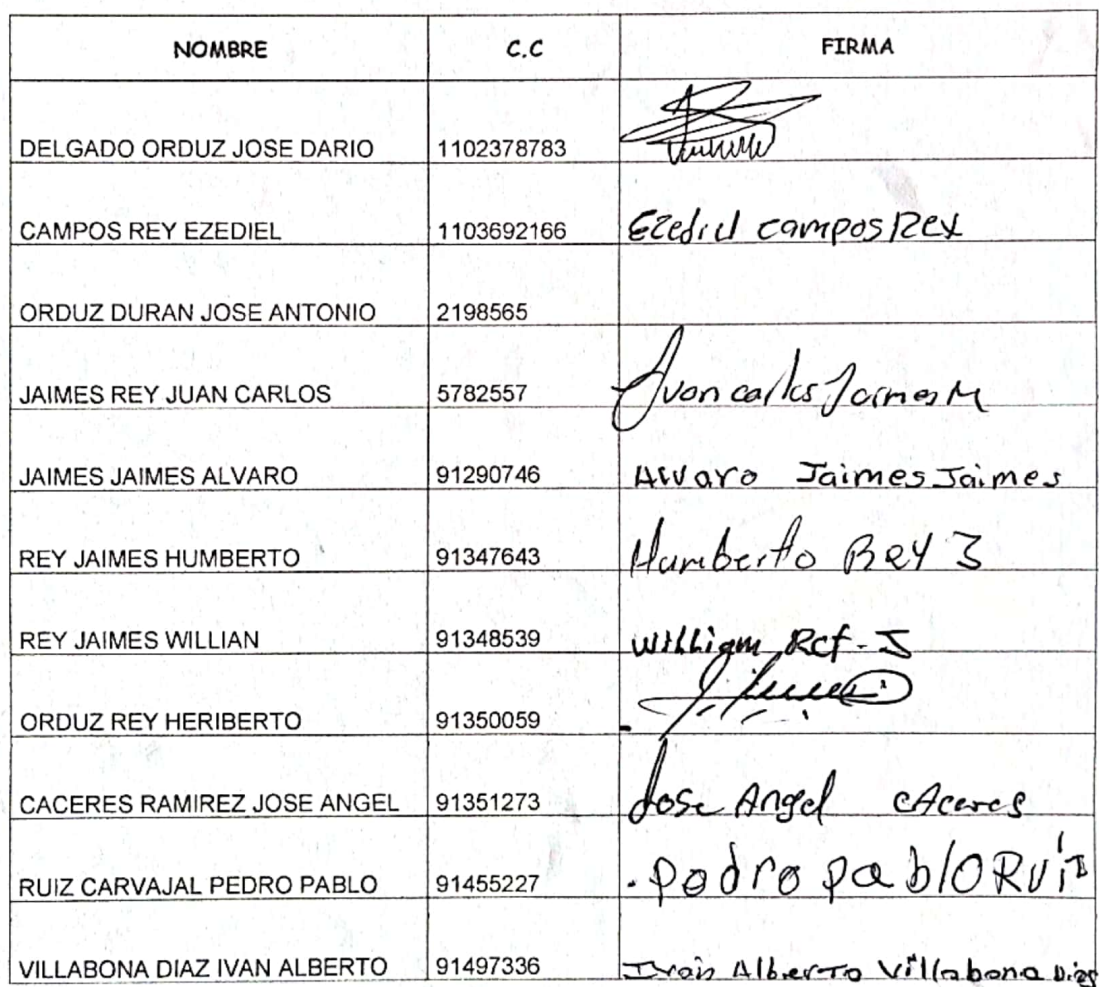 NOMBRE C.C FIRMA
DELGADO ORDUZ JOSE DARIO 1102378783
CAMPOS REY EZEDIEL 1103692166 Ezediel campos Rey
ORDUZ DURAN JOSE ANTONIO 2198565
JAIMES REY JUAN CARLOS 5782557 Juan carlos Jaimes
JAIMES JAIMES ALVARO 91290746 Alvaro Jaimes Jaimes
REY JAIMES HUMBERTO 91347643 Humberto Rey J
REY JAIMES WILLIAN 91348539 William Rey - J
ORDUZ REY HERIBERTO 91350059
CACERES RAMIREZ JOSE ANGEL 91351273 Jose Angel cAceres
RUIZ CARVAJAL PEDRO PABLO 91455227 . pedro pablo RUiz
VILLABONA DIAZ IVAN ALBERTO 91497336 Ivan Alberto Villabona Diaz